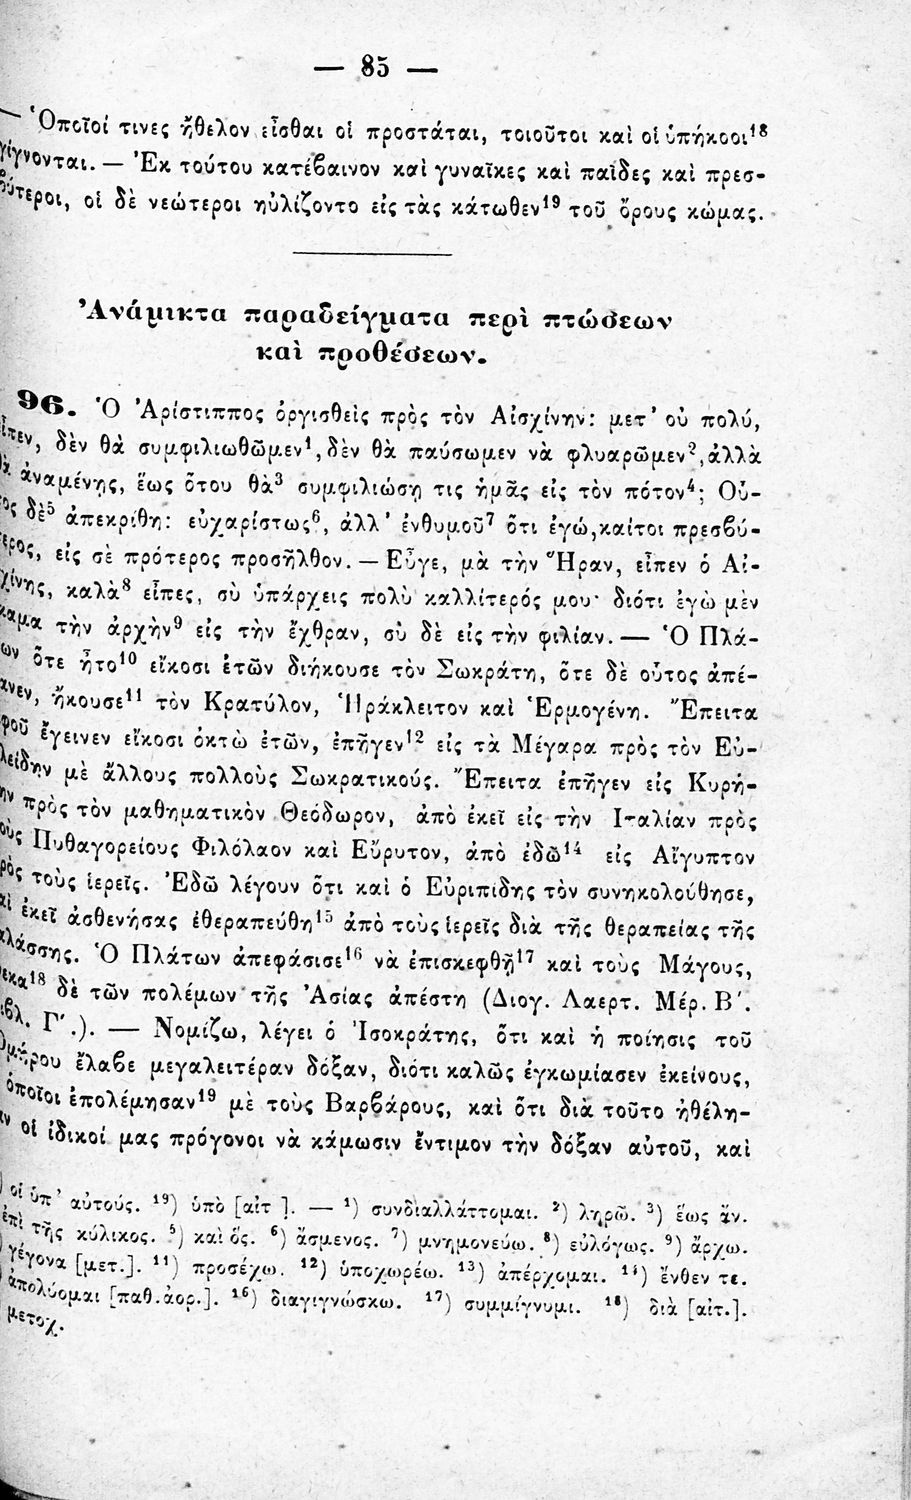 — 85 —
— Ὁποῖοί τινες ἤθελον εἶσθαι οἱ προστάται, τοιοῦτοι καὶ οἱ ὑπήκοοι¹⁸
γίγνονται. — Ἐκ τούτου κατέβαινον καὶ γυναῖκες καὶ παῖδες καὶ πρεσ-
βύτεροι, οἱ δὲ νεώτεροι ηὐλίζοντο εἰς τὰς κάτωθεν¹⁹ τοῦ ὄρους κώμας.
Ἀνάμικτα παραδείγματα περὶ πτώσεων
καὶ προθέσεων.
96. Ὁ Ἀρίστιππος ὀργισθεὶς πρὸς τὸν Αἰσχίνην: μετ' οὐ πολύ,
εἶπεν, δὲν θὰ συμφιλιωθῶμεν¹, δὲν θὰ παύσωμεν νὰ φλυαρῶμεν², ἀλλὰ
θὰ ἀναμένῃς, ἕως ὅτου θὰ³ συμφιλιώσῃ τις ἡμᾶς εἰς τὸν πότον⁴; Οὗ-
τος δὲ⁵ ἀπεκρίθη: εὐχαρίστως⁶, ἀλλ' ἐνθυμοῦ⁷ ὅτι ἐγώ, καίτοι πρεσβύ-
τερος, εἰς σὲ πρότερος προσῆλθον. — Εὖγε, μὰ τὴν Ἥραν, εἶπεν ὁ Αἰ-
σχίνης, καλὰ⁸ εἶπες, σὺ ὑπάρχεις πολὺ καλλίτερός μου· διότι ἐγὼ μὲν
ἔκαμα τὴν ἀρχὴν⁹ εἰς τὴν ἔχθραν, σὺ δὲ εἰς τὴν φιλίαν. — Ὁ Πλά-
των ὅτε ἦτο¹⁰ εἴκοσι ἐτῶν διήκουσε τὸν Σωκράτη, ὅτε δὲ οὗτος ἀπέ-
θανεν, ἤκουσε¹¹ τὸν Κρατύλον, Ἡράκλειτον καὶ Ἑρμογένη. Ἔπειτα
ἀφοῦ ἔγεινεν εἴκοσι ὀκτὼ ἐτῶν, ἐπῆγεν¹² εἰς τὰ Μέγαρα πρὸς τὸν Εὐ-
κλείδην μὲ ἄλλους πολλοὺς Σωκρατικούς. Ἔπειτα ἐπῆγεν εἰς Κυρή-
νην πρὸς τὸν μαθηματικὸν Θεόδωρον, ἀπὸ ἐκεῖ εἰς τὴν Ἰταλίαν πρὸς
τοὺς Πυθαγορείους Φιλόλαον καὶ Εὔρυτον, ἀπὸ ἐδῶ¹⁴ εἰς Αἴγυπτον
πρὸς τοὺς ἱερεῖς. Ἐδῶ λέγουν ὅτι καὶ ὁ Εὐριπίδης τὸν συνηκολούθησε,
καὶ ἐκεῖ ἀσθενήσας ἐθεραπεύθη¹⁵ ἀπὸ τοὺς ἱερεῖς διὰ τῆς θεραπείας τῆς
θαλάσσης. Ὁ Πλάτων ἀπεφάσισε¹⁶ νὰ ἐπισκεφθῇ¹⁷ καὶ τοὺς Μάγους,
ἕνεκα¹⁸ δὲ τῶν πολέμων τῆς Ἀσίας ἀπέστη (Διογ. Λαερτ. Μέρ. Β΄.
Βιβλ. Γ΄.). — Νομίζω, λέγει ὁ Ἰσοκράτης, ὅτι καὶ ἡ ποίησις τοῦ
Ὁμήρου ἔλαβε μεγαλειτέραν δόξαν, διότι καλῶς ἐγκωμίασεν ἐκείνους,
ὁποῖοι ἐπολέμησαν¹⁹ μὲ τοὺς Βαρβάρους, καὶ ὅτι διὰ τοῦτο ἠθέλη-
αν οἱ ἰδικοί μας πρόγονοι νὰ κάμωσιν ἔντιμον τὴν δόξαν αὐτοῦ, καὶ
) οἱ ὑπ' αὐτούς. ¹⁹) ὑπὸ [αἰτ]. — ¹) συνδιαλλάττομαι. ²) ληρῶ. ³) ἕως ἄν.
ἐπὶ τῆς κύλικος. ⁵) καὶ ὅς. ⁶) ἄσμενος. ⁷) μνημονεύω. ⁸) εὐλόγως. ⁹) ἄρχω.
γέγονα [μετ.]. ¹¹) προσέχω. ¹²) ὑποχωρέω. ¹³) ἀπέρχομαι. ¹⁴) ἔνθεν τε.
ἀπολύομαι [παθ. ἀορ.]. ¹⁶) διαγιγνώσκω. ¹⁷) συμμίγνυμι. ¹⁸) διὰ [αἰτ.].
μετοχ.